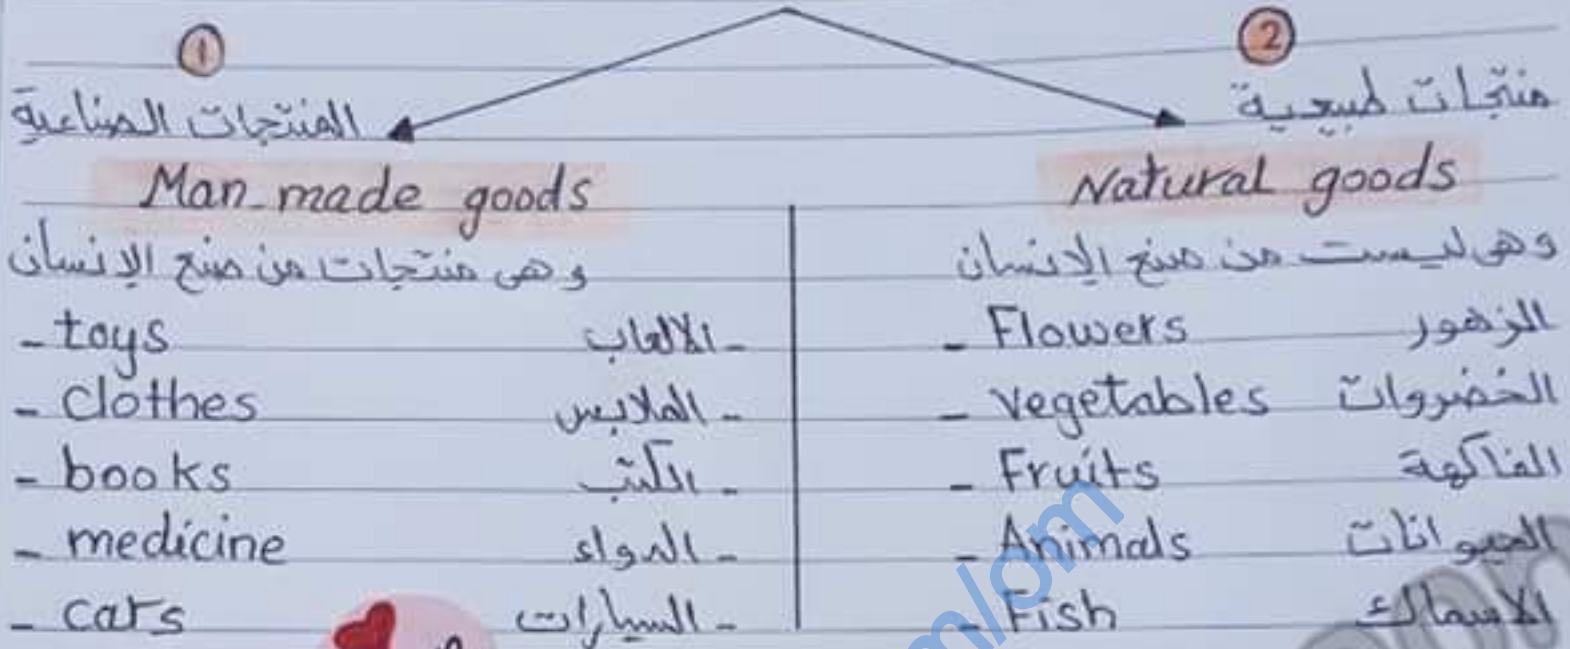 1
المنتجات الصناعية
Man-made goods
وهى منتجات من صنع الإنسان
- toys - الالعاب
- clothes - الملابس
- books - الكتب
- medicine - الدواء
- cars - السيارات
2
منتجات طبيعية
Natural goods
وهى ليست من صنع الإنسان
- Flowers الزهور
- vegetables الخضروات
- Fruits الفاكهة
- Animals الحيوانات
- Fish الاسماك
m/om